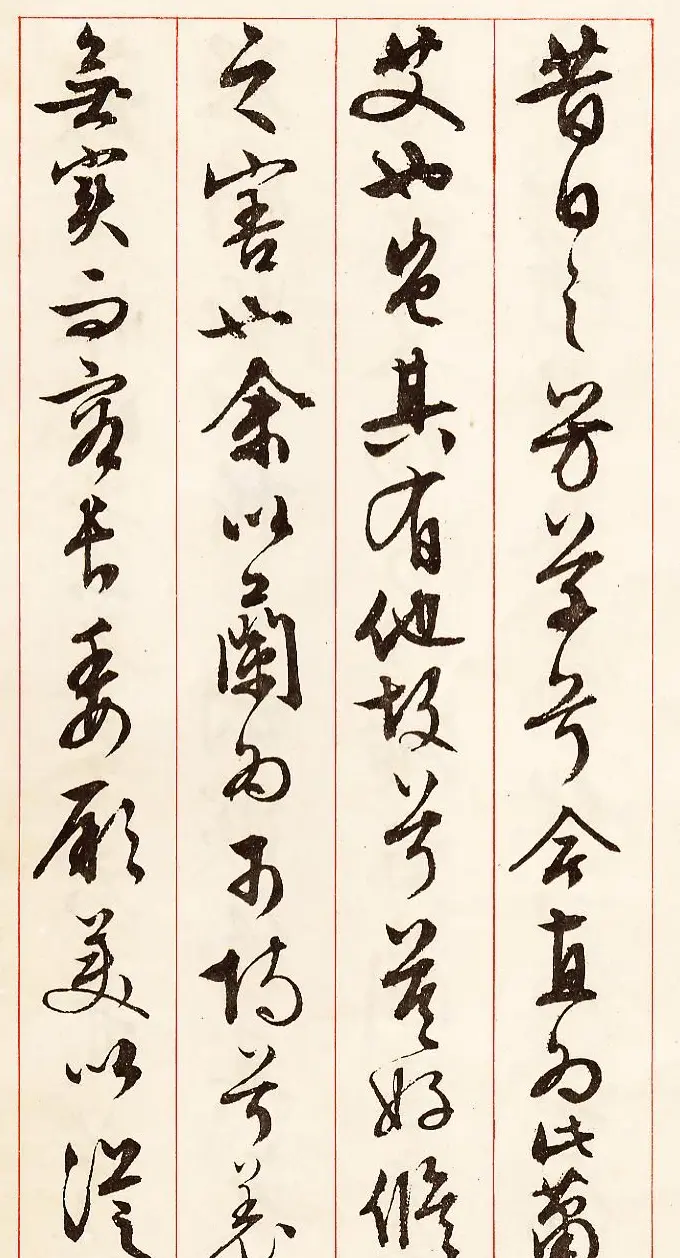 昔日之芳草兮今直為此蕭
艾也豈其有他故兮莫好脩
之害也余以蘭為可恃兮羌
無實而容長委厥美以從